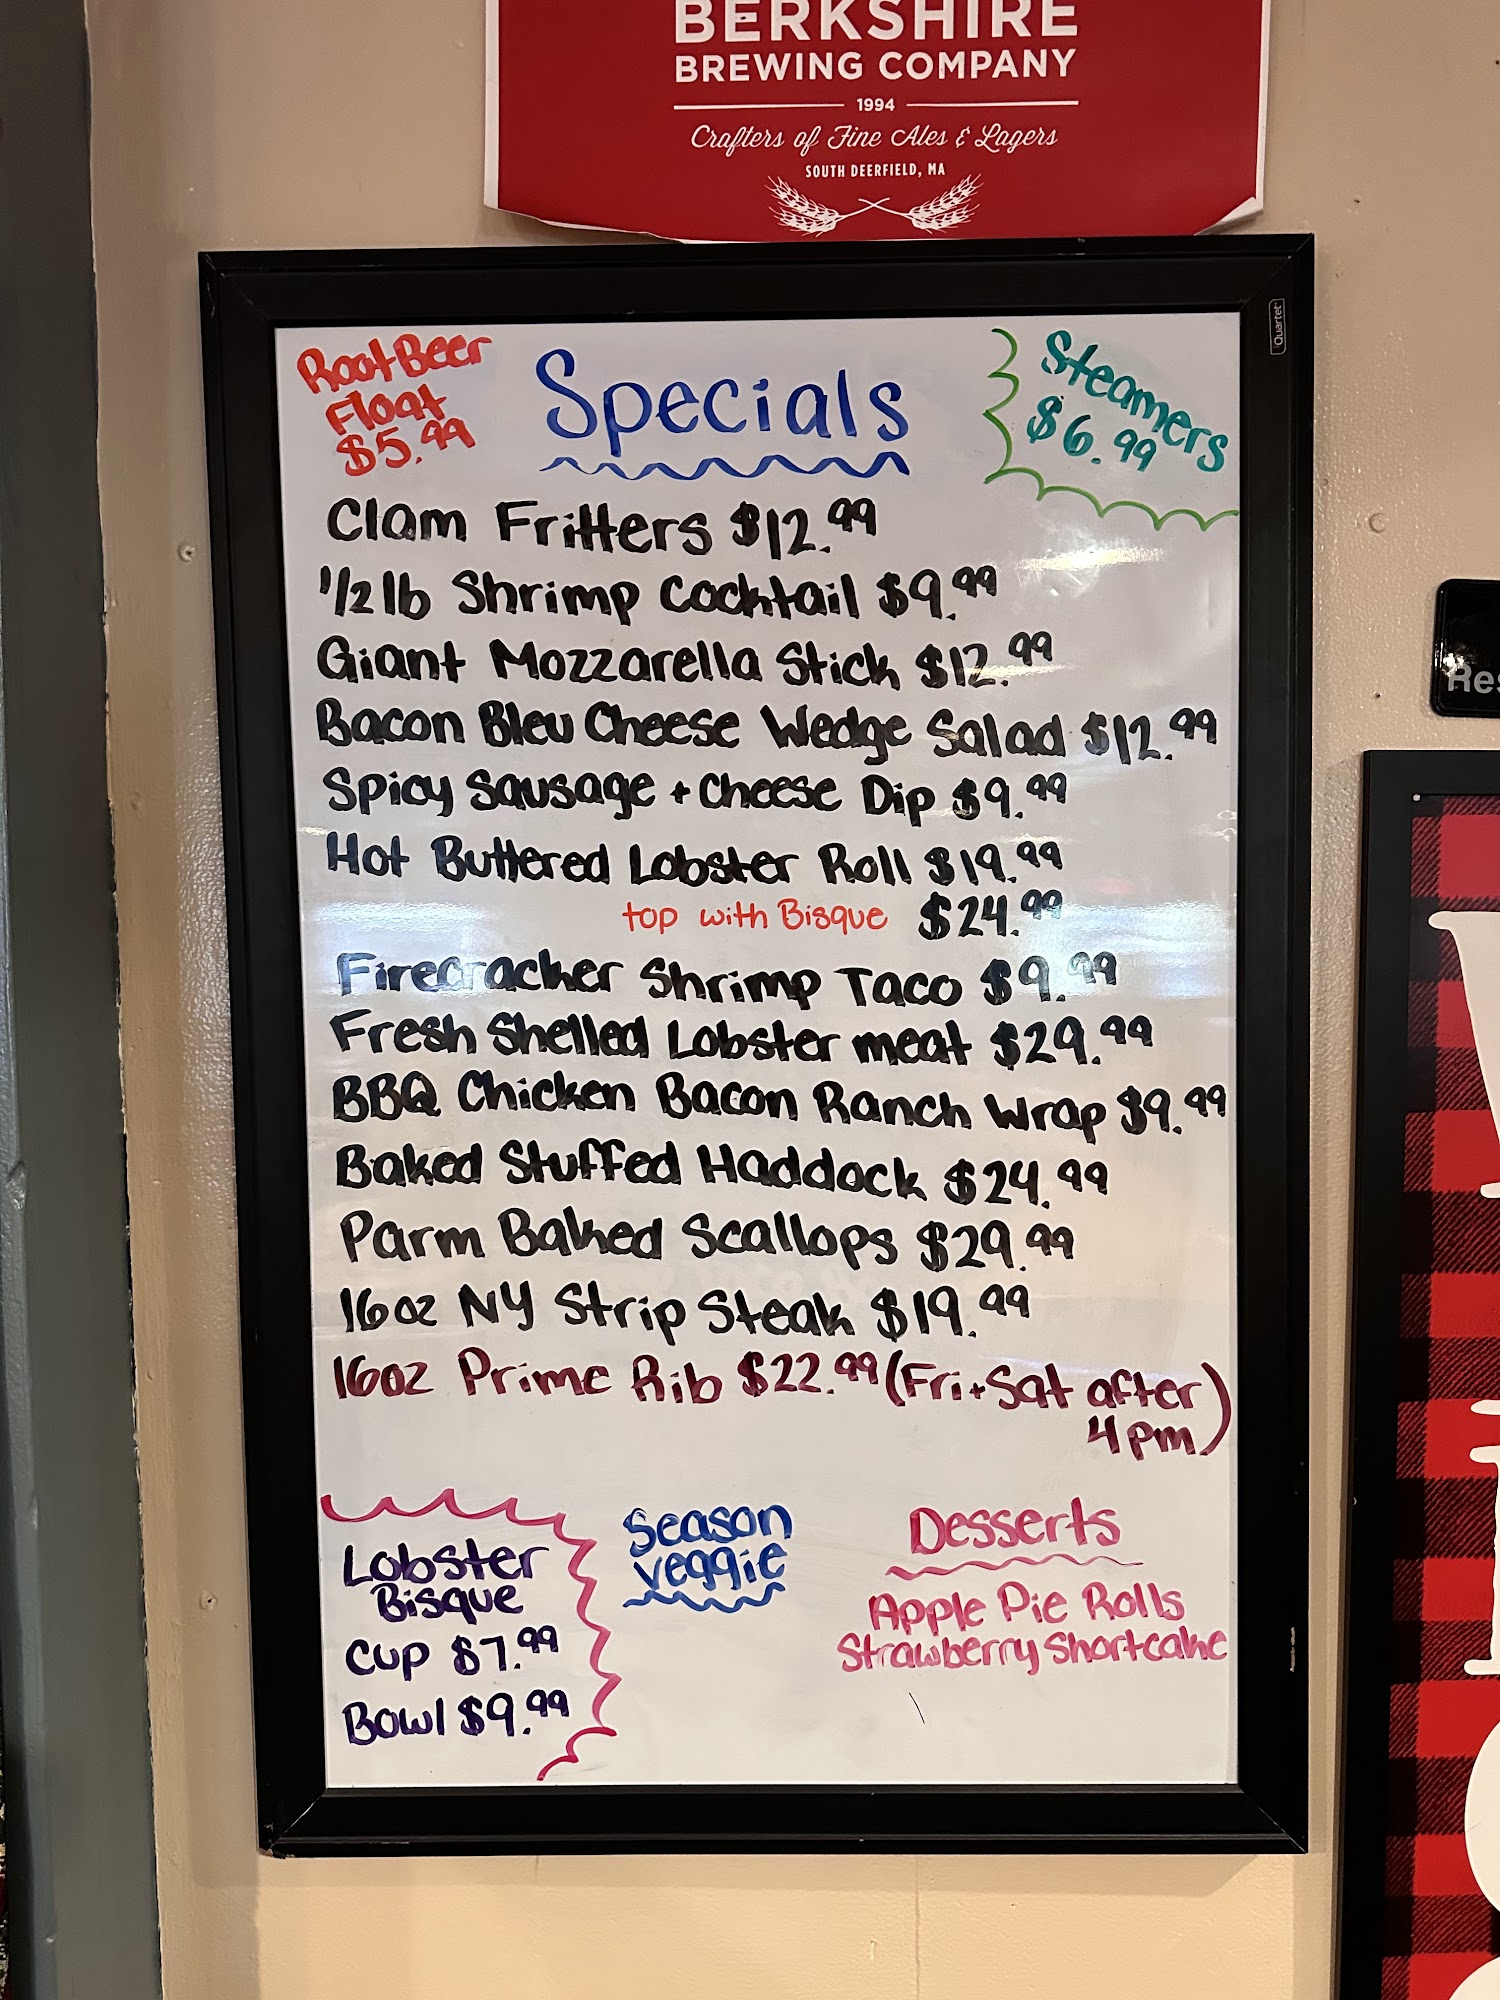 BERKSHIRE
BREWING COMPANY
1994
Crafters of Fine Ales & Lagers
SOUTH DEERFIELD, MA
Quartet
Root Beer
Float
$5.99
Specials
Steamers
$6.99
Clam Fritters $12.99
1/2 lb Shrimp Cocktail $9.99
Giant Mozzarella Stick $12.99
Bacon Bleu Cheese Wedge Salad $12.99
Spicy Sausage + Cheese Dip $9.99
Hot Buttered Lobster Roll $19.99
top with Bisque $24.99
Firecracker Shrimp Taco $9.99
Fresh Shelled Lobster meat $29.99
BBQ Chicken Bacon Ranch Wrap $9.99
Baked Stuffed Haddock $24.99
Parm Baked Scallops $29.99
16oz NY Strip Steak $19.99
16oz Prime Rib $22.99 (Fri + Sat after
4pm)
Lobster
Bisque
Cup $7.99
Bowl $9.99
Season
veggie
Desserts
Apple Pie Rolls
Strawberry Shortcake